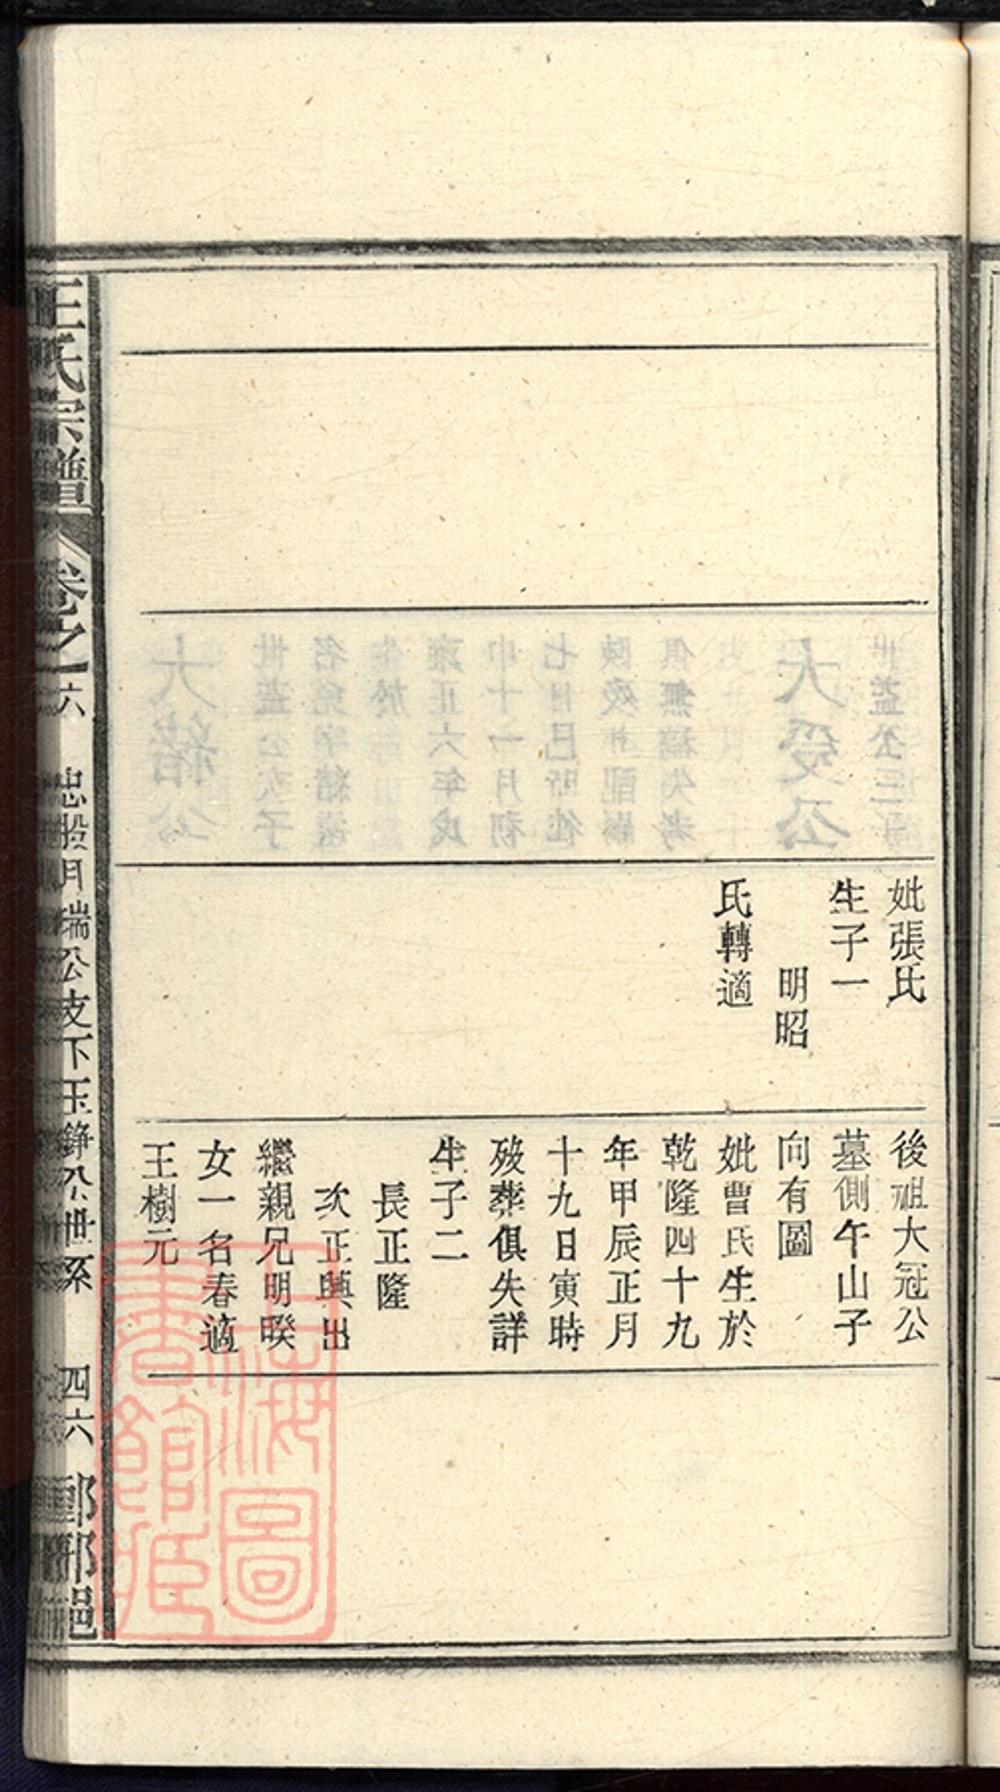 妣張氏
生子一
明昭
氏轉適
後祖大冠公
墓側午山子
向有圖
妣曹氏生於
乾隆四十九
年甲辰正月
十九日寅時
歿葬俱失詳
生子二
長正隆
次正興出
繼親兄明暌
女一名春適
王樹元
王氏宗譜
卷之六
忠股月瑞公支下玉錚公世系
四六
上海圖書館藏